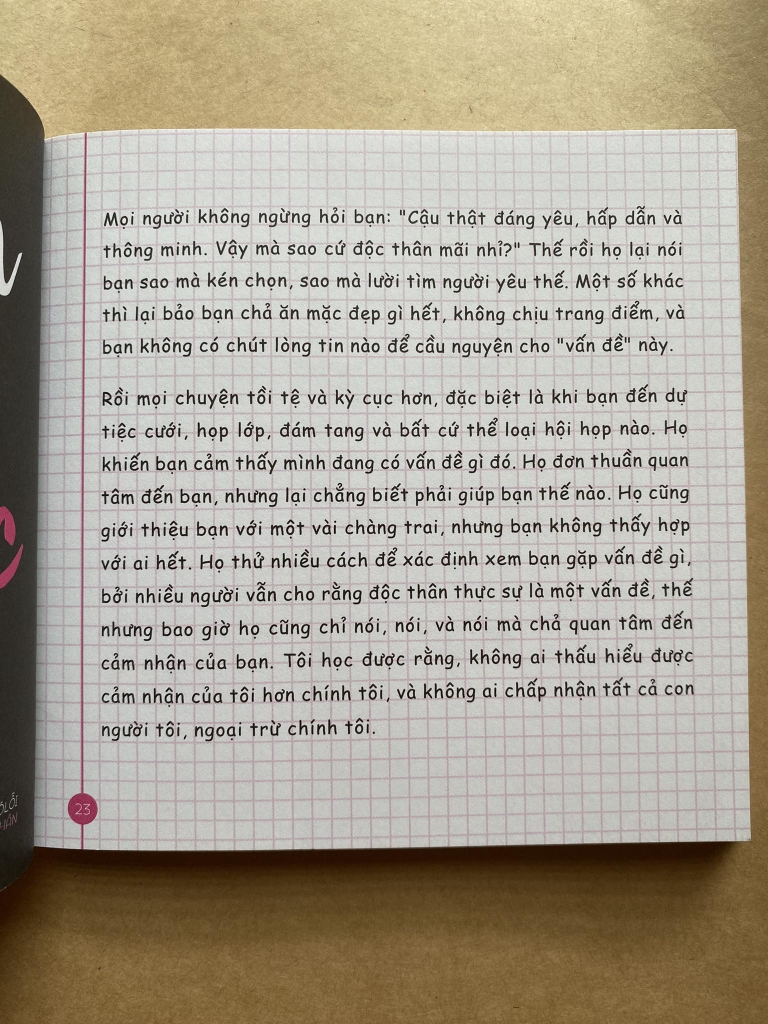 Mọi người không ngừng hỏi bạn: "Cậu thật đáng yêu, hấp dẫn và
thông minh. Vậy mà sao cứ độc thân mãi nhỉ?" Thế rồi họ lại nói
bạn sao mà kén chọn, sao mà lười tìm người yêu thế. Một số khác
thì lại bảo bạn chả ăn mặc đẹp gì hết, không chịu trang điểm, và
bạn không có chút lòng tin nào để cầu nguyện cho "vấn đề" này.
Rồi mọi chuyện tồi tệ và kỳ cục hơn, đặc biệt là khi bạn đến dự
tiệc cưới, họp lớp, đám tang và bất cứ thể loại hội họp nào. Họ
khiến bạn cảm thấy mình đang có vấn đề gì đó. Họ đơn thuần quan
tâm đến bạn, nhưng lại chẳng biết phải giúp bạn thế nào. Họ cũng
giới thiệu bạn với một vài chàng trai, nhưng bạn không thấy hợp
với ai hết. Họ thử nhiều cách để xác định xem bạn gặp vấn đề gì,
bởi nhiều người vẫn cho rằng độc thân thực sự là một vấn đề, thế
nhưng bao giờ họ cũng chỉ nói, nói, và nói mà chả quan tâm đến
cảm nhận của bạn. Tôi học được rằng, không ai thấu hiểu được
cảm nhận của tôi hơn chính tôi, và không ai chấp nhận tất cả con
người tôi, ngoại trừ chính tôi.
23